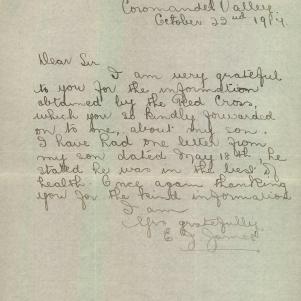 Coromandel Valley
October 22nd 1917
Dear Sir
I am very grateful
to you for the information
obtained by the Red Cross,
which you so kindly forwarded
on to me, about my son.
I have had one letter from
my son dated May 18th, he
stated he was in the best of
health Once again thanking
you for the kind information
I am
Yrs gratefully
E J James